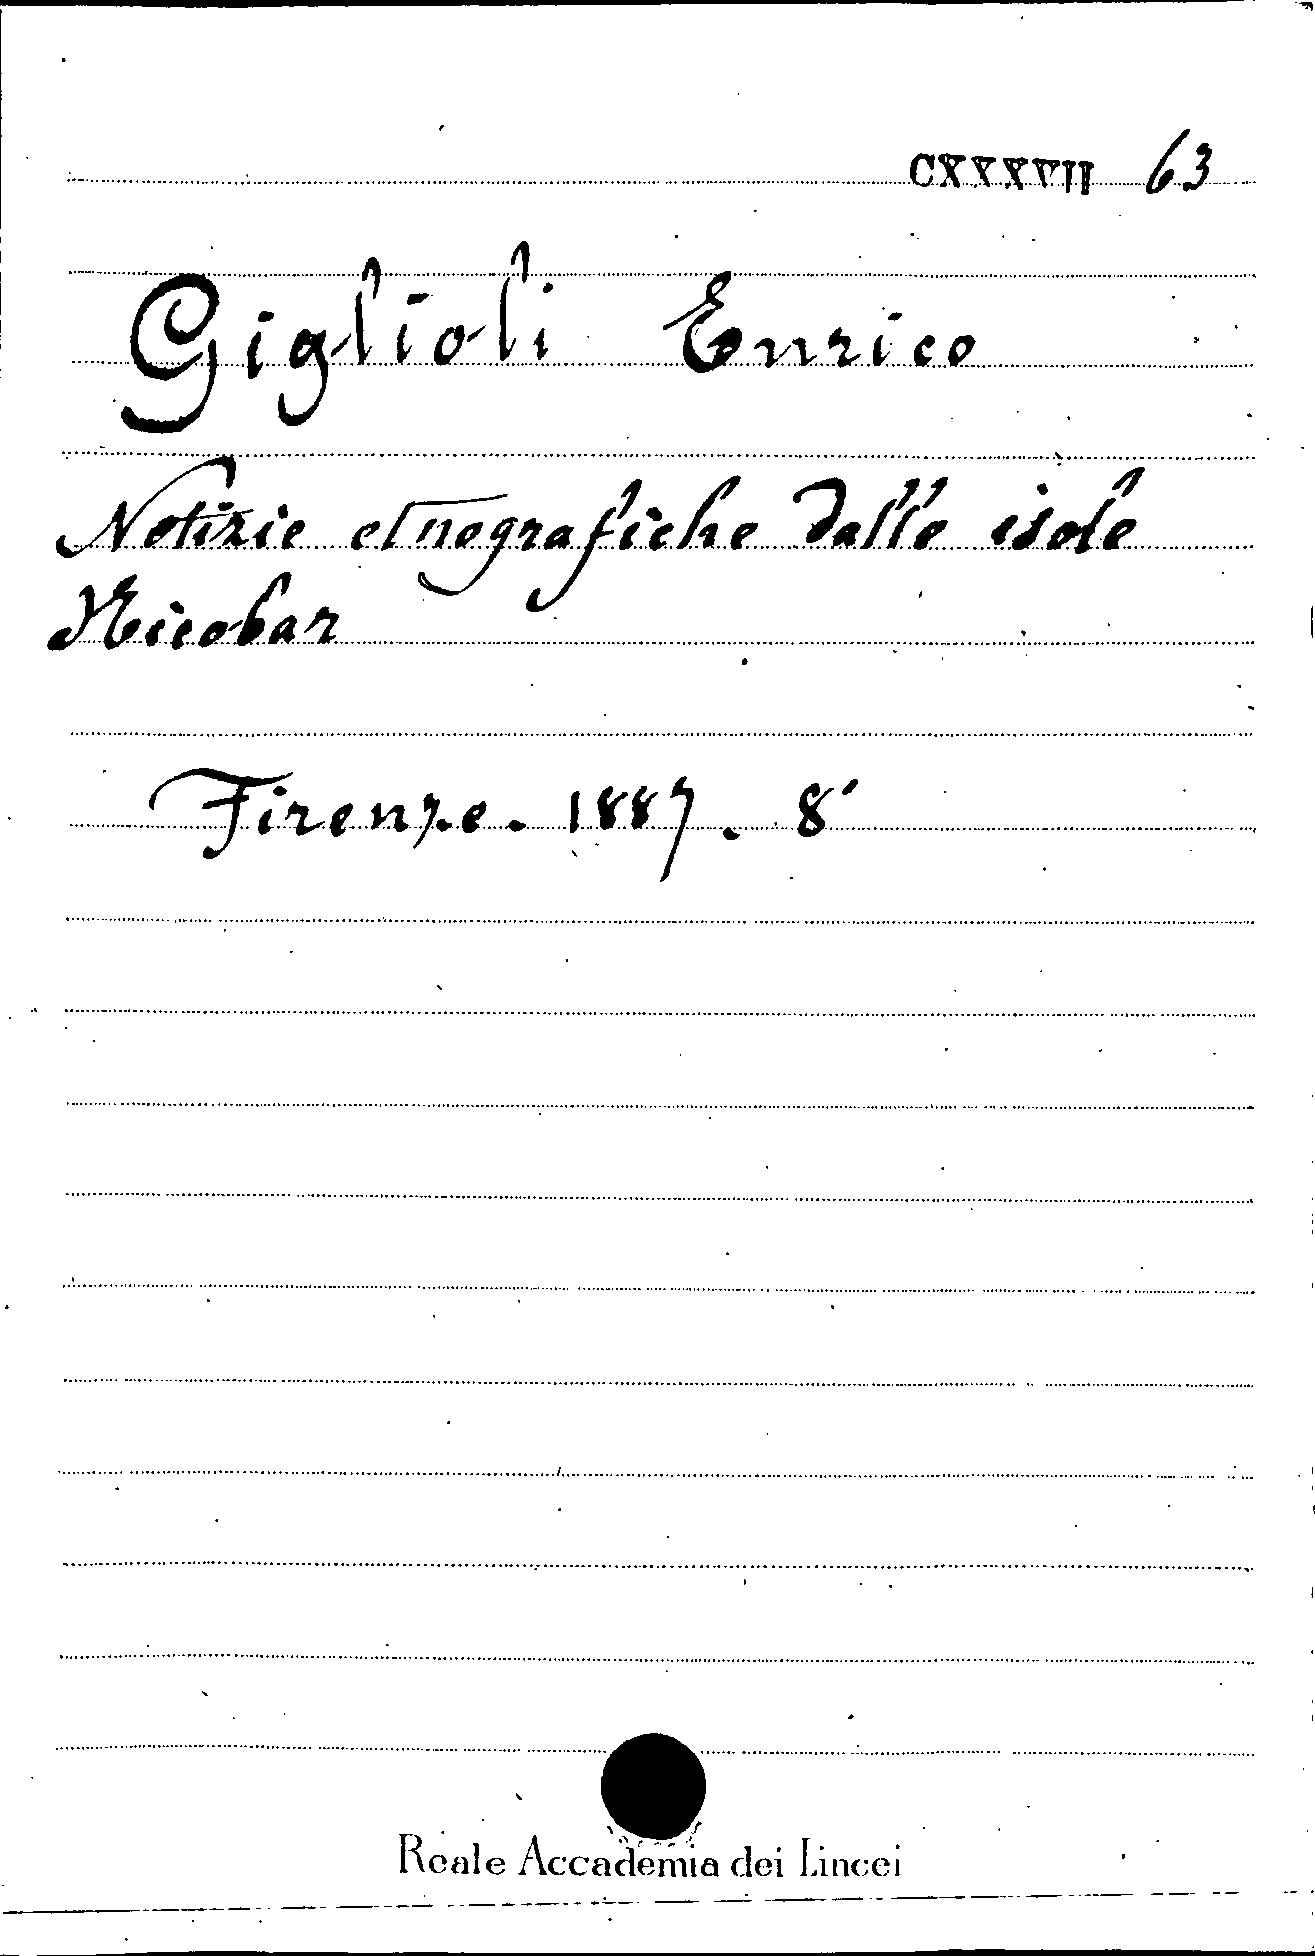 CXXXVII 63
Giglioli Enrico
Notizie etnografiche dalle isole
Nicobar
Firenze. 1887. 8°
Reale Accademia dei Lincei